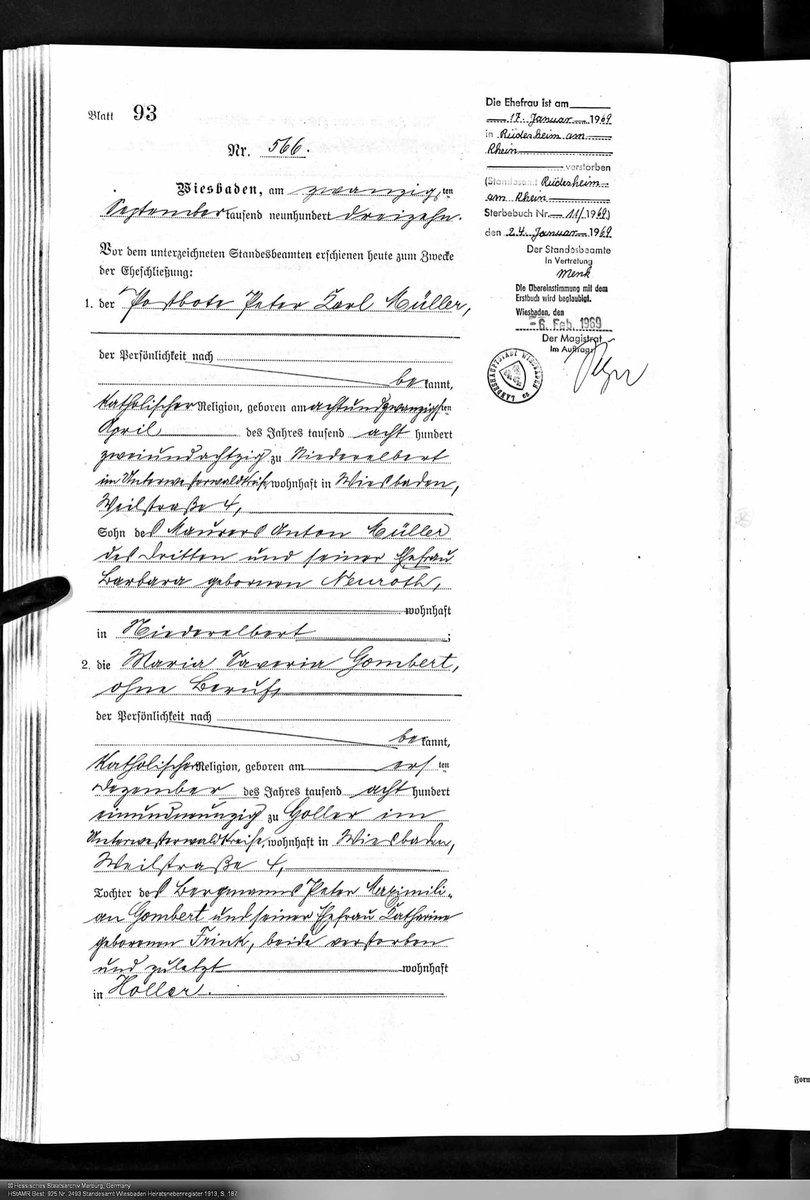 Blatt 93
Nr. 566.
Wiesbaden, am zwanzigsten
September tausend neunhundert dreizehn.
Vor dem unterzeichneten Standesbeamten erschienen heute zum Zwecke
der Eheschließung:
1. der Postbote Peter Karl Müller,
der Persönlichkeit nach
bekannt,
katholischer Religion, geboren am achtundzwanzigsten
April des Jahres tausend acht hundert
zweiundachtzig zu Niederelbert
im Unterwesterwaldkreise, wohnhaft in Wiesbaden,
Weilstraße 4,
Sohn des Maurers Anton Müller
des Dritten und seiner Ehefrau
Barbara geborenen Neuroth,
wohnhaft
in Niederelbert ;
2. die Maria Saveria Gombert,
ohne Beruf,
der Persönlichkeit nach
bekannt,
katholischer Religion, geboren am ersten
Dezember des Jahres tausend acht hundert
einundneunzig zu Holler im
Unterwesterwaldkreise, wohnhaft in Wiesbaden,
Weilstraße 4,
Tochter des Bergmanns Peter Maximili-
an Gombert und seiner Ehefrau Katharina
geborenen Frink, beide verstorben
und zuletzt wohnhaft
in Holler.
Die Ehefrau ist am
17. Januar 1969
in Rüdesheim am
Rhein
verstorben
(Standesamt Rüdesheim
am Rhein
Sterbebuch Nr. 11/1969)
den 24. Januar 1969
Der Standesbeamte
In Vertretung
Menk
Die Übereinstimmung mit dem
Erstbuch wird beglaubigt.
Wiesbaden, den
-6. Feb. 1969
Der Magistrat
Im Auftrag:
LANDESHAUPTSTADT WIESBADEN
Form
Hessisches Staatsarchiv Marburg, Germany
HStAMR Best. 925 Nr. 2493 Standesamt Wiesbaden Heiratsnebenregister 1913, S. 187